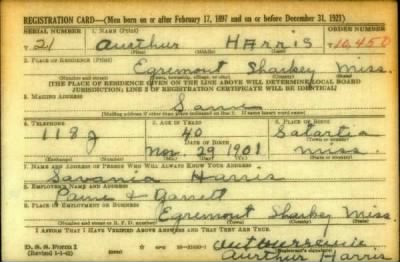 REGISTRATION CARD—(Men born on or after February 17, 1897 and on or before December 31, 1921)
SERIAL NUMBER 1. NAME (Print) ORDER NUMBER
T 21 Aurthur Harris T 10,450
(First) (Middle) (Last)
2. PLACE OF RESIDENCE (Print)
Egremont Sharkey Miss.
(Number and street) (Town, township, village, or city) (County) (State)
[THE PLACE OF RESIDENCE GIVEN ON THE LINE ABOVE WILL DETERMINE LOCAL BOARD
JURISDICTION; LINE 2 OF REGISTRATION CERTIFICATE WILL BE IDENTICAL]
3. MAILING ADDRESS
Same
[Mailing address if other than place indicated on line 2. If same insert word same]
4. TELEPHONE 5. AGE IN YEARS 6. PLACE OF BIRTH
118 J 40 Satartia
DATE OF BIRTH (Town or county)
Nov. 29 1901 Miss.
(Exchange) (Number) (Mo.) (Day) (Yr.) (State or country)
7. NAME AND ADDRESS OF PERSON WHO WILL ALWAYS KNOW YOUR ADDRESS
Savania Harris
8. EMPLOYER'S NAME AND ADDRESS
Garrett
9. PLACE OF EMPLOYMENT OR BUSINESS
Egremont Sharkey Miss.
(Number and street or R. F. D. number) (Town) (County) (State)
I AFFIRM THAT I HAVE VERIFIED ABOVE ANSWERS AND THAT THEY ARE TRUE.
D. S. S. Form 1
(Revised 1-1-42) (Registrant's signature)
Aurthur Harris